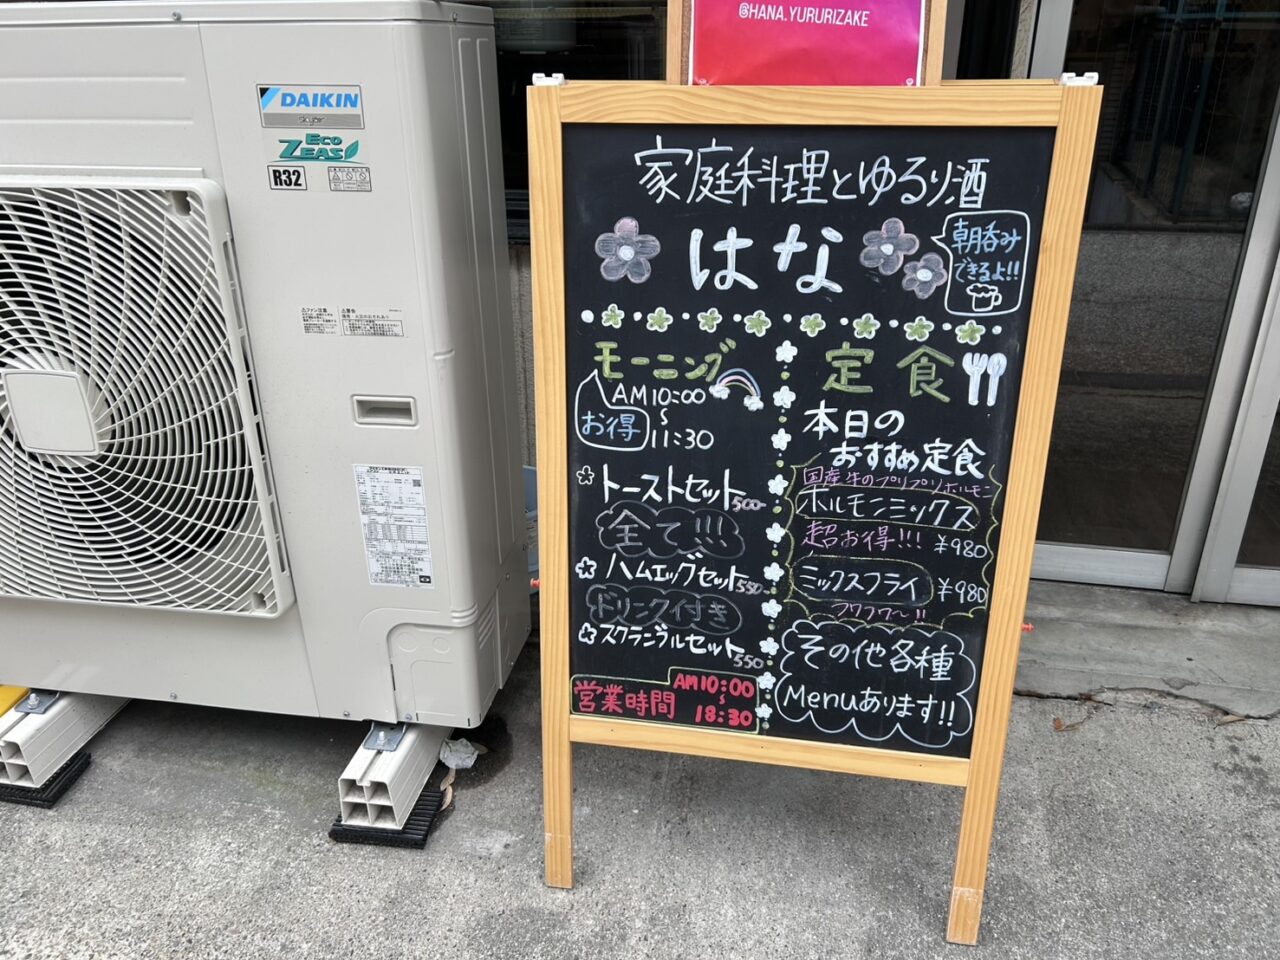 @HANA.YURURIZAKE
DAIKIN
skyair
Eco
ZEAS
R32
家庭料理とゆるり酒
はな
朝呑み
できるよ!!
モーニング
AM10:00
〜
11:30
お得
トーストセット 500-
全て!!!
ハムエッグセット 550-
ドリンク付き
スクランブルセット 550
営業時間 AM10:00
〜
18:30
定食
本日の
おすすめ定食
国産牛のプリプリホルモン
ホルモンミックス
超お得!!! ¥980
ミックスフライ ¥980
フワフワ〜!!
その他各種
Menuあります!!